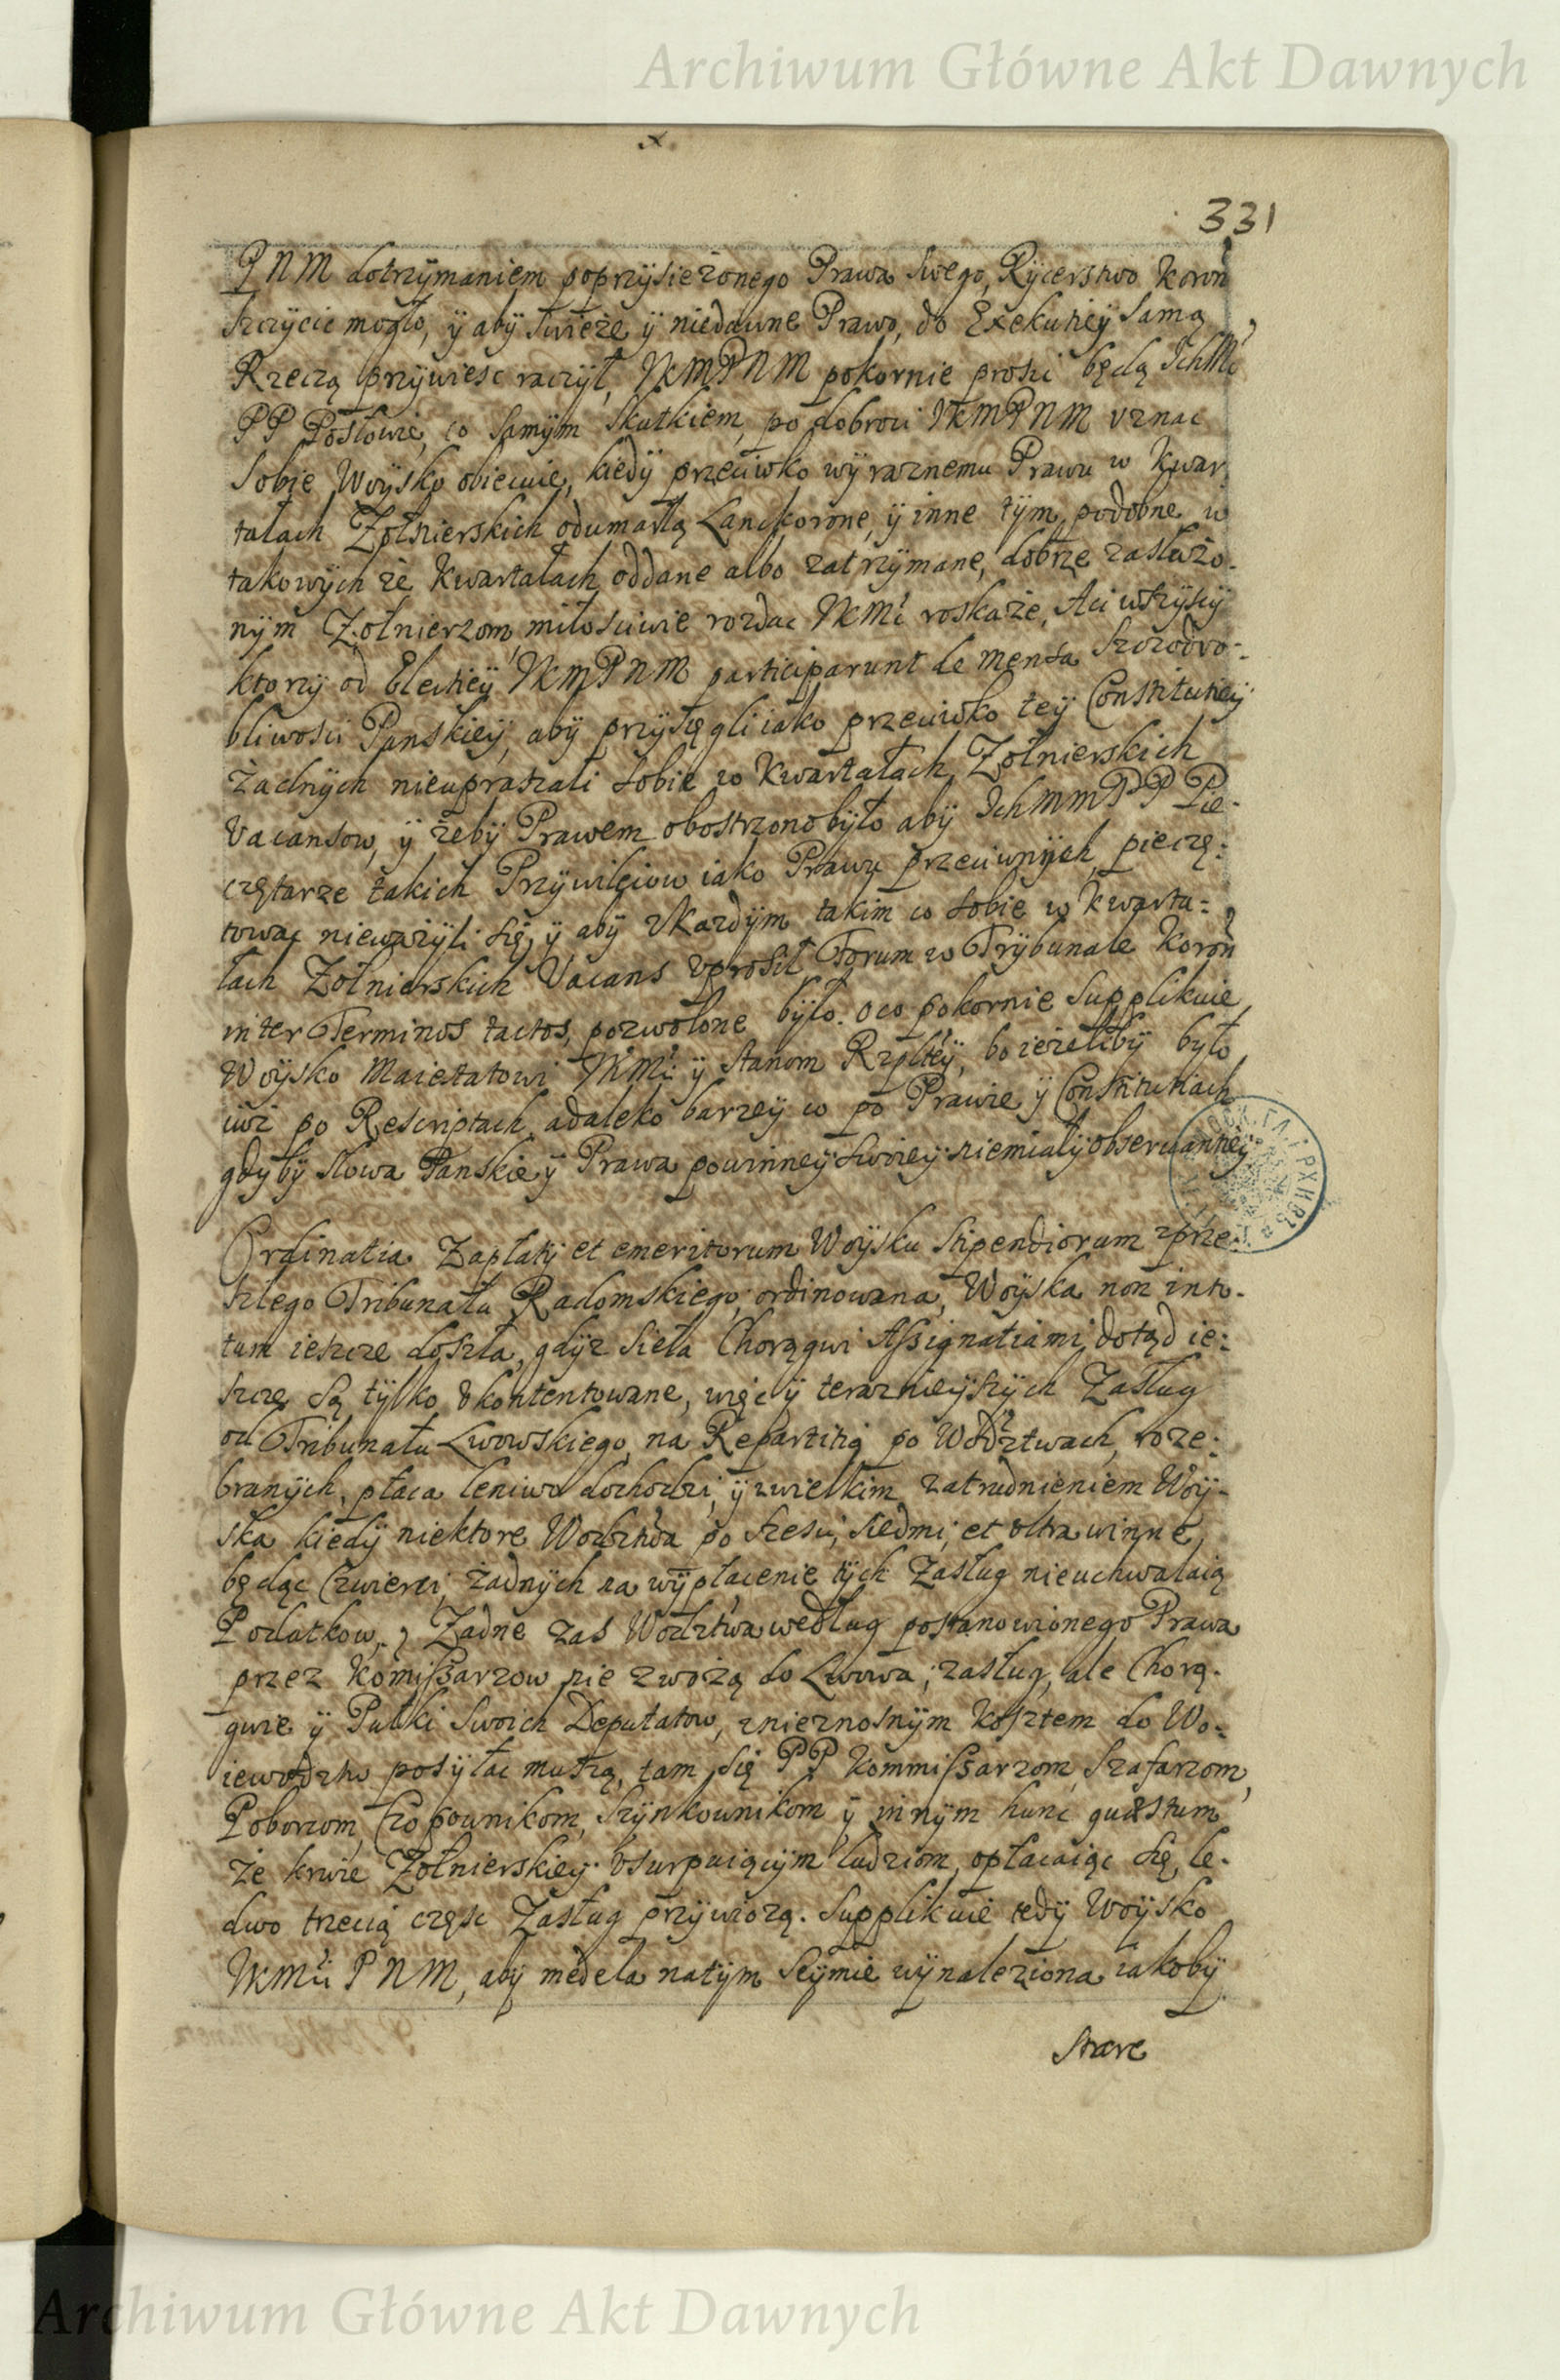 Archiwum Główne Akt Dawnych
331
PNM dotrzÿmaniem poprzÿsieżonego Prawa Swego, Rÿcerstwo Koron
szczÿcic mogło, ÿ abÿ swieże ÿ niedawne Prawo, do Exekutieÿ samą
Rzeczą przÿwiesc raczÿł, WKMPNM pokornie prosic będą IchMć
PP Posłowie, co samÿm skutkiem, po dobroci WKMPNM uznac
sobie Woÿsko obiecuie, kiedÿ przeciwko wÿraznemu Prawu w Kwar
tałach Żołnierskich odumarłą Lanckoronę, ÿ inne tÿm podobne w
takowÿch że Kwartałach oddane albo zatrzÿmane, dobrze zasłużo-
nÿm Żołnierzom miłosciwie rozdac WKMć roskaże. Aci wszÿscÿ
ktorzÿ od Electieÿ WKMPNM participarunt de mensa Szczodro-
bliwosci Panskieÿ, abÿ przÿsięgli iako przeciwko teÿ Constitucieÿ
żadnÿch nieupraszali sobie w Kwartałach Żołnierskich
Vacansow, ÿ żebÿ Prawem obostrzono bÿło abÿ IchMmPP Pie-
czętarze takich Przÿwileiow iako Prawu przeciwnÿch pieczę:
towac nieważÿli się, ÿ abÿ zKazdÿm takim co sobie w Kwarta=
łach Żołnierskich Vacans uprosił Forum w Trÿbunale Koron
inter Terminos tactos, pozwolone bÿło. Oco pokornie Supplikuie
Woÿsko Maiestatowi WKMći ÿ Stanom Rzpłteÿ, bo ieżelibÿ bÿło
iuż po Rescriptach, adaleko barzeÿ co po Prawie ÿ Constitutiach
gdÿbÿ słowa Panskie ÿ Prawa powinneÿ swoieÿ niemiałÿ obserwantieÿ
Ordinatia Zapłatÿ et emeritorum Woÿsku Stipendiorum zprze
szłego Tribunału Radomskiego, ordinowana, Woÿska non into-
tum ieszcze doszła, gdÿz siełа Chorągwi Assignatiami dotąd ie:
szcze są tÿlko ukontentowane, więc ÿ teraznieÿszÿch Zasług
od Tribunału Lwowskiego, na Repartitią po Wodztwach, roze:
branÿch, płaca leniwo dochodzi, ÿ zwielkim zatrudnieniem Woÿ-
ska kiedÿ niektore Wodztwa po szesci, siedmi, et ultra winne
będąc Cwierci, żadnÿch na wÿpłacenie tÿch Zasług nieuchwalaią
Podatkow, Żadne zas Wodztwa według postanowionego Prawa
przez Komissarzow nie zwożą do Lwowa, zasług, ale Chorą-
gwie ÿ Pułki swoich Deputatow, znieznosnÿm Kosztem do Wo-
iewodztw posÿłac muszą, tam się PP Kommissarzom, Szafarzom,
Poborcom, Czopownikom, Szÿnkownikom ÿ innÿm hunc quæstum
że krwie Żołnierskieÿ usurpuiącÿm ludziom, opłacaiąc się, le-
dwo trzecią częsc Zasług przÿwiozą. Supplikuie tedÿ Woÿsko
WKMći PNM, abÿ medela natÿm Seÿmie wÿnaleziona iakobÿ
stare
Archiwum Główne Akt Dawnych